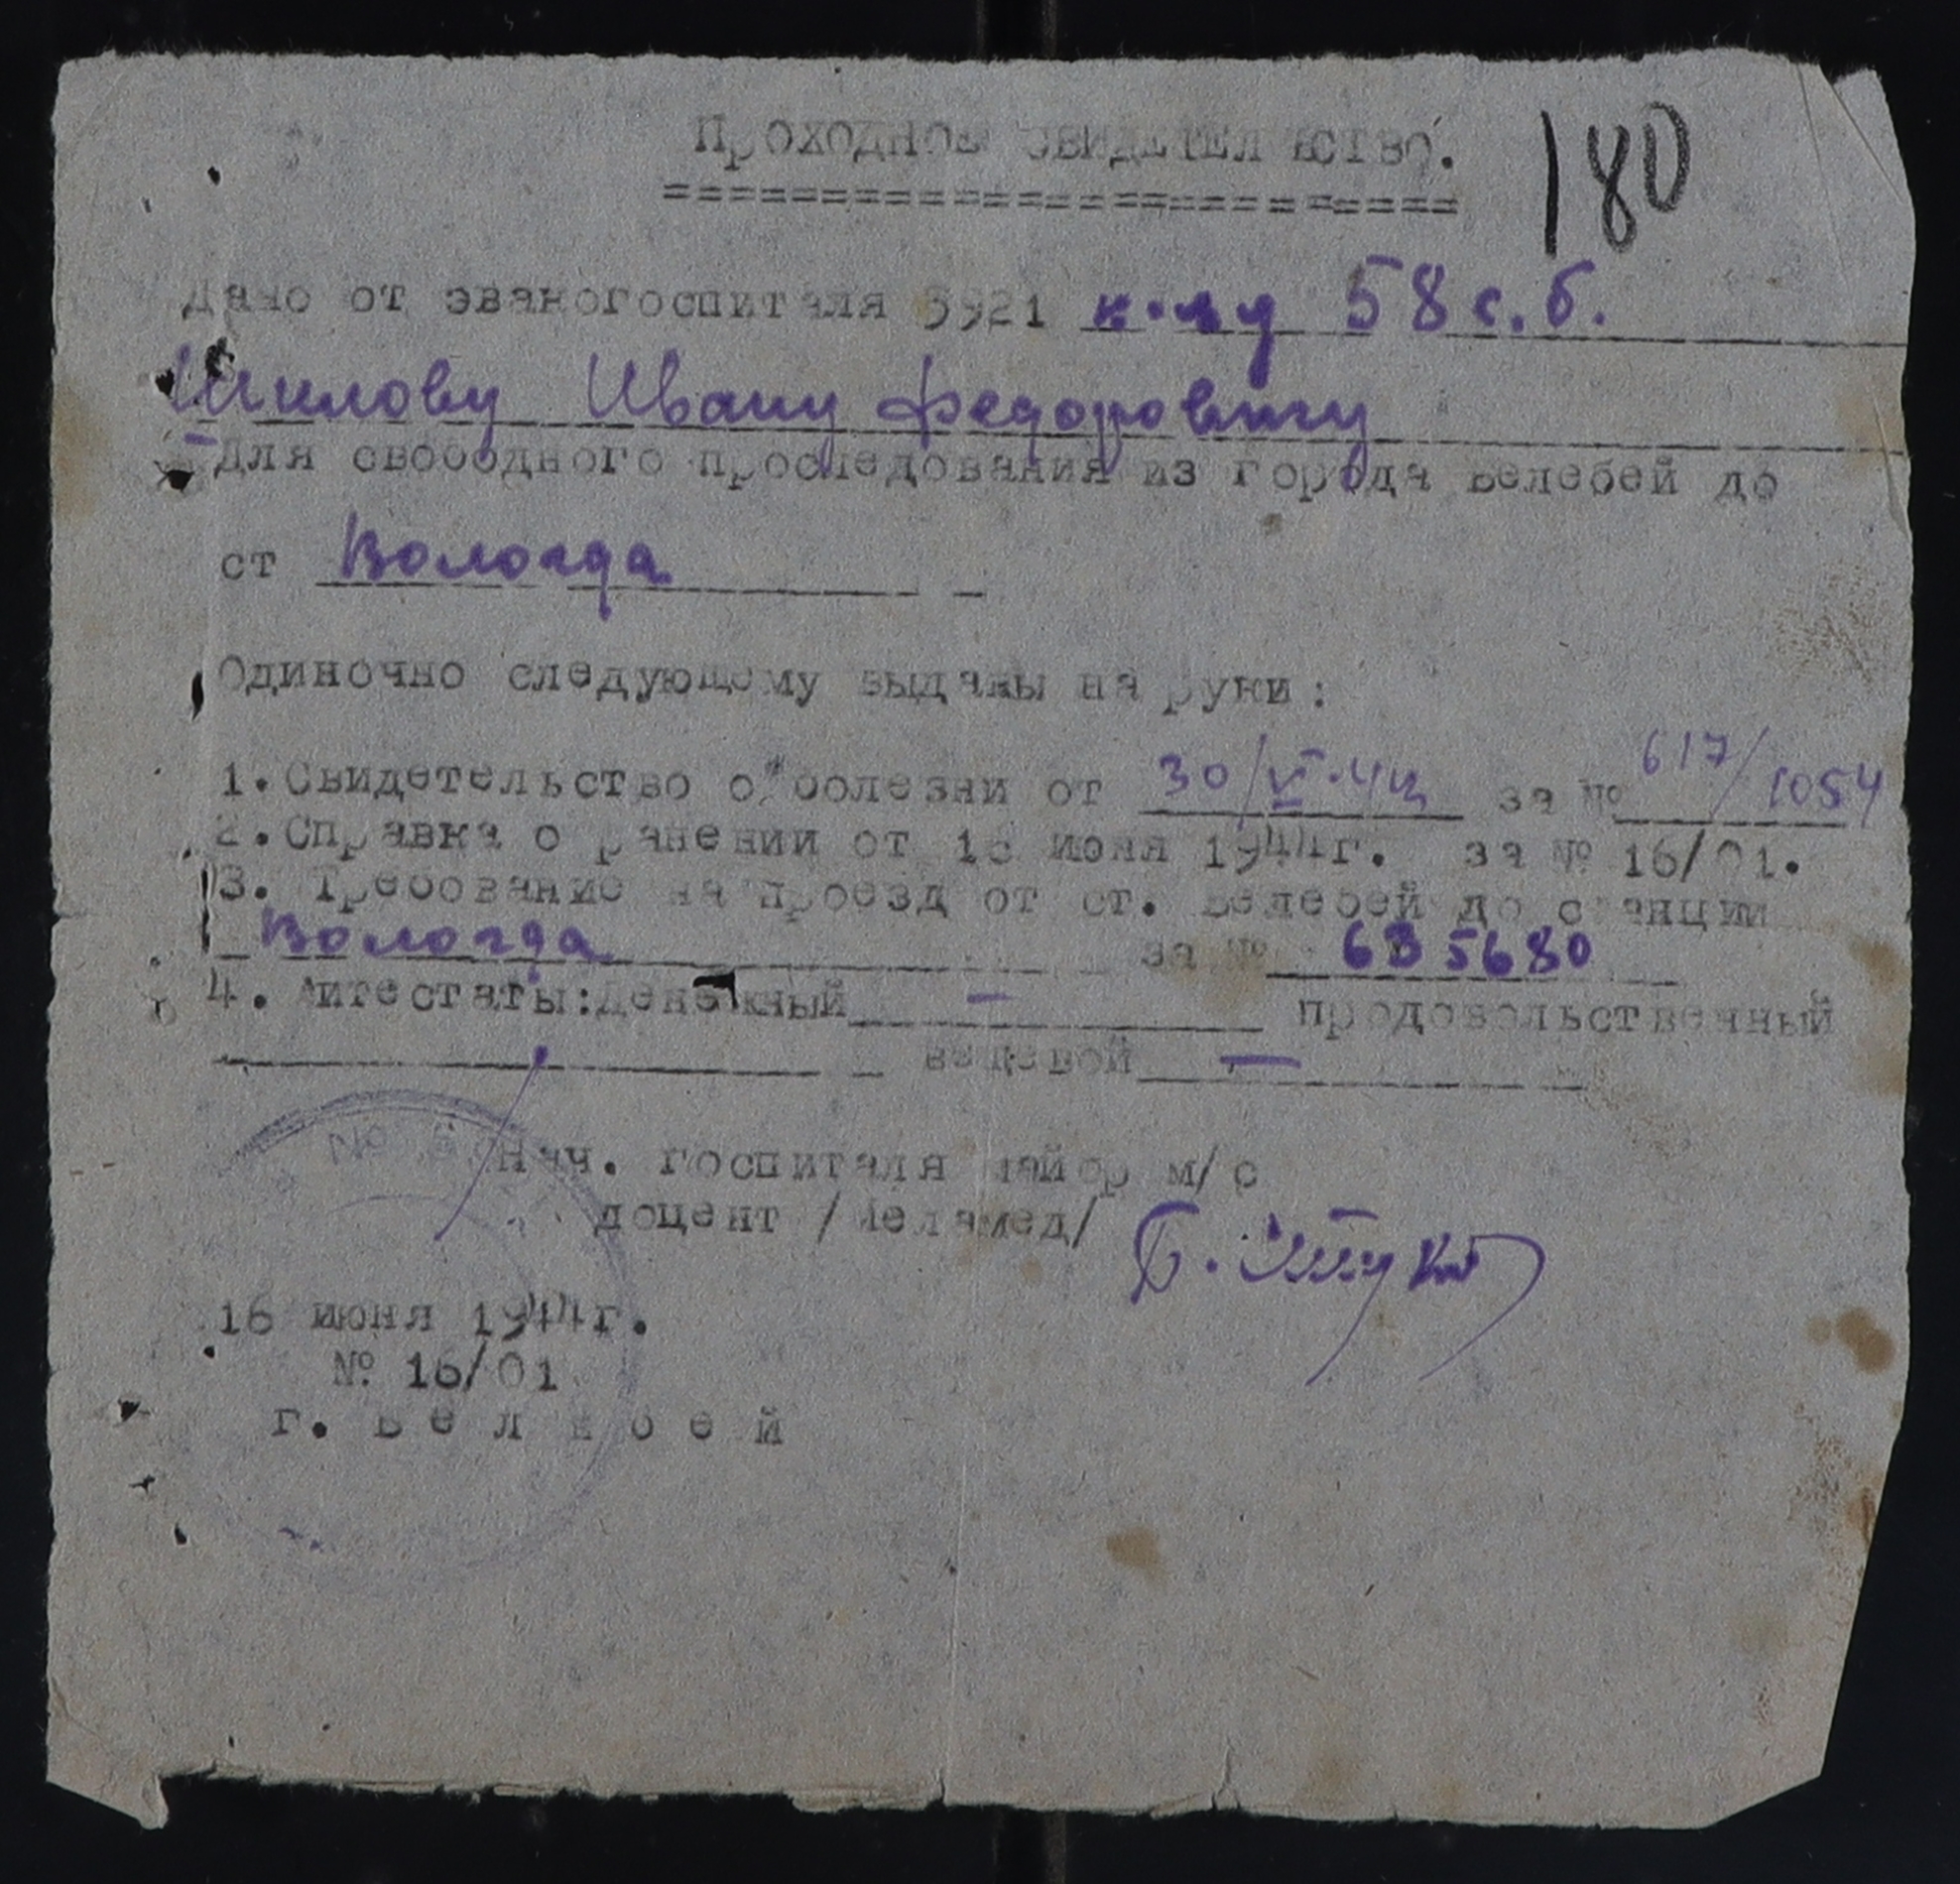 Проходное свидетельство.
180
Дано от эвакогоспиталя 5921 к-цу 58 с. б.
Шилову Ивану Федоровичу
Для свободного проследования из города Белебей до
ст Вологда
Одиночно следующему выданы на руки:
1. Свидетельство о болезни от 30/VI-44 за № 617/1054
2. Справка о ранении от 16 июня 1944г. за № 16/01.
3. Требование на проезд от ст. Белебей до станции
Вологда за № 635680
4. Аттестаты: денежный — продовольственный
вещевой —
Нач. госпиталя майор м/с
доцент /Меламед/
16 июня 1944г.
№ 16/01
г. Белебей